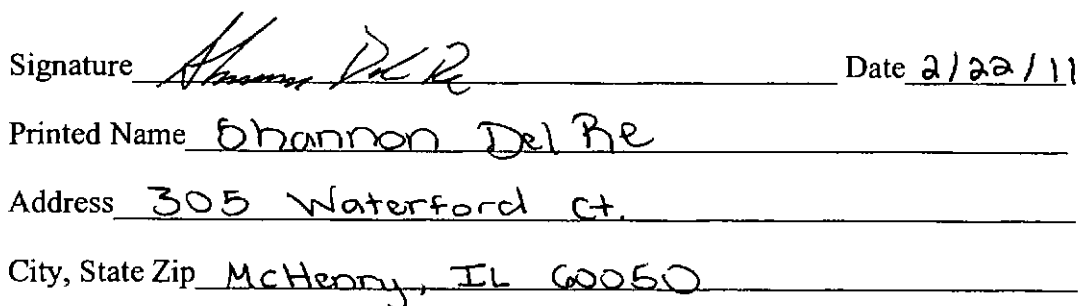 Signature Shannon Del Re Date 2/22/11
Printed Name Shannon Del Re
Address 305 Waterford Ct.
City, State Zip McHenry, IL 60050